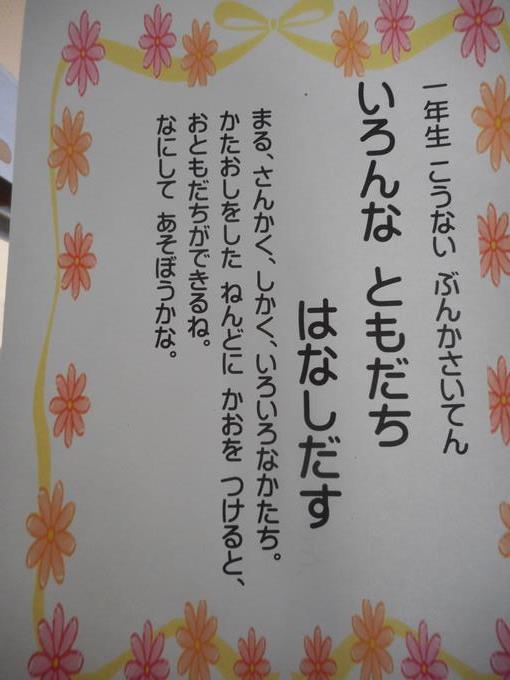 一年生 こうない ぶんかさいてん
いろんな ともだち
はなしだす
まる、さんかく、しかく、いろいろなかたち。
かたおしをした ねんどに かおを つけると、
おともだちができるね。
なにして あそぼうかな。